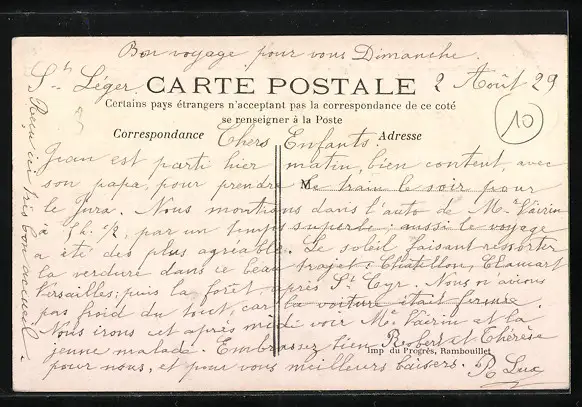 Bon voyage pour vous Dimanche.
St Léger. CARTE POSTALE 2 Août 29
Certains pays étrangers n'acceptant pas la correspondance de ce coté
se renseigner à la Poste
10
Correspondance Chers Enfants. Adresse
Jean est parti hier matin, bien content, avec
son papa, pour prendre M le train le soir pour
le Jura. Nous montions dans l'auto de Me Vairin
par un temps superbe; aussi le voyage
a été des plus agréable. Le soleil faisant ressortir
la verdure dans ce beau trajet: Chatillon, Clamart
Versailles; puis la forêt, après St Cyr. Nous n'avions
pas froid du tout, car la voiture était fermée.
Nous irons cet après midi voir Me Vairin et la
jeune malade. Embrassez bien Robert et Thérèse
Imp du Progrès, Rambouillet
pour nous, et pour vous meilleurs baisers. Luc
Reçu ici très bon accueil.